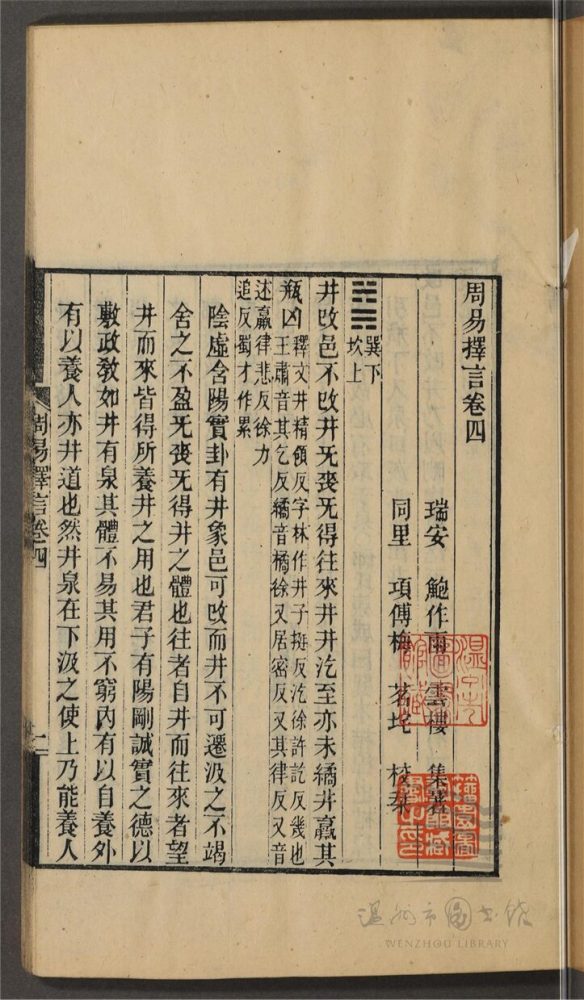 周易擇言卷四
瑞安 鮑作雨 雲樓 集著
同里 項傅梅 茗垞 校刊
䷯ 巽下
坎上
井改邑不改井无喪无得往來井井汔至亦未繘井羸其
瓶凶
釋文井精領反字林作井子挺反汔徐許訖反幾也
王肅音其乞反繘音橘徐又居密反又其律反又音
述羸律悲反徐力
追反蜀才作累
陰虛含陽實卦有井象邑可改而井不可遷汲之不竭
舍之不盈无喪无得井之體也往者自井而往來者望
井而來皆得所養井之用也君子有陽剛誠實之德以
敷政敎如井有泉其體不易其用不窮內有以自養外
有以養人亦井道也然井泉在下汲之使上乃能養人
周易擇言卷四
二
温州市圖書館
WENZHOU LIBRARY